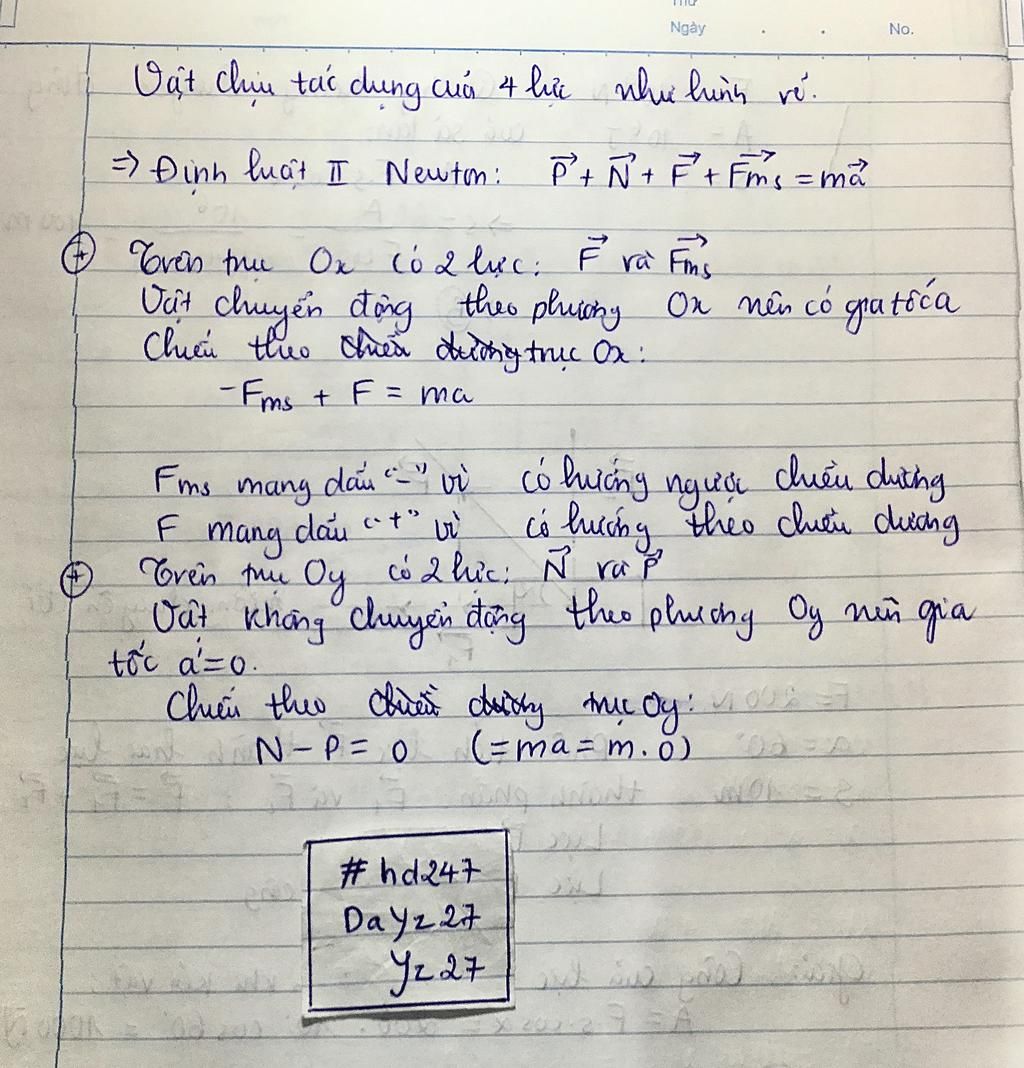 Thứ
Ngày . . No.
Vật chịu tác dụng của 4 lực như hình vẽ.
=> Định luật II Newton: P⃗ + N⃗ + F⃗ + F⃗ms = ma⃗
⊕ Trên trục Ox có 2 lực: F⃗ và F⃗ms
Vật chuyển động theo phương Ox nên có gia tốc a
Chiếu theo chiều dương trục Ox:
-Fms + F = ma
Fms mang dấu "-" vì có hướng ngược chiều dương
F mang dấu "+" vì có hướng theo chiều dương
⊕ Trên trục Oy có 2 lực: N⃗ và P⃗
Vật không chuyển động theo phương Oy nên gia
tốc a'=0.
Chiếu theo chiều dương trục Oy:
N - P = 0 (= ma = m.0)
# hd247
DaYz27
Yz27